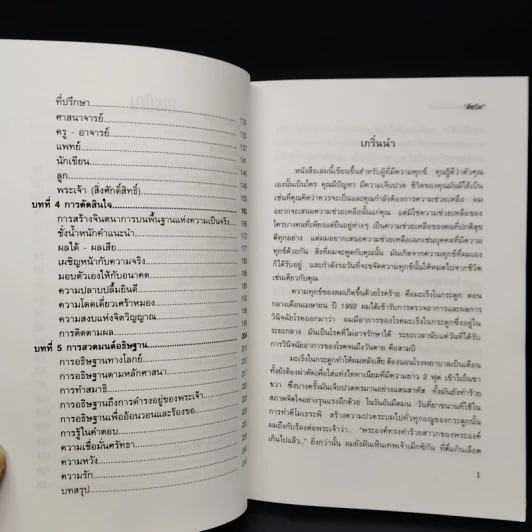 ที่ปรึกษา
ศาสนาจารย์ 130
ครู - อาจารย์
แพทย์ 141
นักเขียน
ลูก
พระเจ้า (สิ่งศักดิ์สิทธิ์)
บทที่ 4 การตัดสินใจ 163
การสร้างจินตนาการบนพื้นฐานแห่งความเป็นจริง
ชั่งน้ำหนักคำแนะนำ
ผลได้ - ผลเสีย
เผชิญหน้ากับความจริง
มอบตัวเองให้กับอนาคต
ความปลาบปลื้มยินดี
ความโดดเดี่ยวเศร้าหมอง
ความสงบแห่งจิตวิญญาณ
การติดตามผล
บทที่ 5 การสวดมนต์อธิษฐาน 204
การอธิษฐานทางโลกย์
การอธิษฐานตามหลักศาสนา
การทำสมาธิ
การอธิษฐานถึงการดำรงอยู่ของพระเจ้า
การอธิษฐานเพื่ออ้อนวอนและร้องขอ
การรู้ในคำตอบ
ความเชื่อมั่นศรัทธา
ความหวัง
ความรัก
บทสรุป
เกริ่นนำ
หนังสือเล่มนี้เขียนขึ้นสำหรับผู้ที่มีความทุกข์ คุณรู้ดีว่าตัวคุณ
เองนั้นเป็นใคร คุณมีปัญหา มีความเจ็บปวด ชีวิตของคุณมันมิได้เป็น
เช่นที่คุณคิดว่าควรจะเป็นและคุณกำลังต้องการความช่วยเหลือ ผม
อยากจะเสนอความช่วยเหลือนั้นแก่คุณ แต่มิใช่ความช่วยเหลือของ
ใครบางคนที่เพียงแต่ยืนอยู่ห่างๆ เป็นความช่วยเหลือของคนที่ปกติสุข
ดีทุกอย่าง แต่ผมอยากเสนอความช่วยเหลือเฉกเช่นบุคคลที่มีความ
ทุกข์ด้วยกัน สิ่งที่ผมจะพูดกับคุณนั้น มันเกิดจากความทุกข์ที่ผมเอง
ก็ได้รับอยู่ และกำลังรอวันที่จะขจัดความทุกข์นั้นให้หมดไปจากชีวิต
เช่นเดียวกับคุณ
ความทุกข์ของผมเกิดขึ้นด้วยโรคร้าย คือมะเร็งในกระดูก ตอน
กลางเดือนเมษายน ปี 1992 ผมได้เข้ารับการตรวจอาการและผลการ
วินิจฉัยโรคออกมาว่า ผมมีอาการของโรคมะเร็งในกระดูกซึ่งอยู่ใน
ระยะกลาง มันเป็นโรคที่ไม่อาจรักษาได้ ระยะเวลานับแต่วันที่ได้รับ
การวินิจฉัยอาการของโรคจนถึงวันตาย คือสามปี
มะเร็งในกระดูกทำให้ผมหลังเสีย ต้องนอนโรงพยาบาลเป็นเดือน
ทั้งยังต้องผ่าตัดเพื่อใส่แท่งไททาเนียมที่มีความยาว 2 ฟุต เข้าไปในขา
ขวา ซึ่งบางครั้งมันเจ็บปวดทรมานอย่างแสนสาหัส ทั้งมันยังทำร้าย
สภาพจิตใจอย่างรุนแรงอีกด้วย ในวันอันมืดมน วันที่ยาขนานที่ใช้ใน
การทำคีโมเธอราพี สร้างความปวดระบมไปทั่วทุกอณูของกระดูกนั้น
ผมถึงกับร้องต่อพระเจ้าว่า.. "พระองค์ทรงทำร้ายสาวกของพระองค์
เกินไปแล้ว.." ยิ่งกว่านั้น ผมยังฝันเห็นเทพเจ้าเม็กซิกัน ที่ดื่มกินเลือด
1